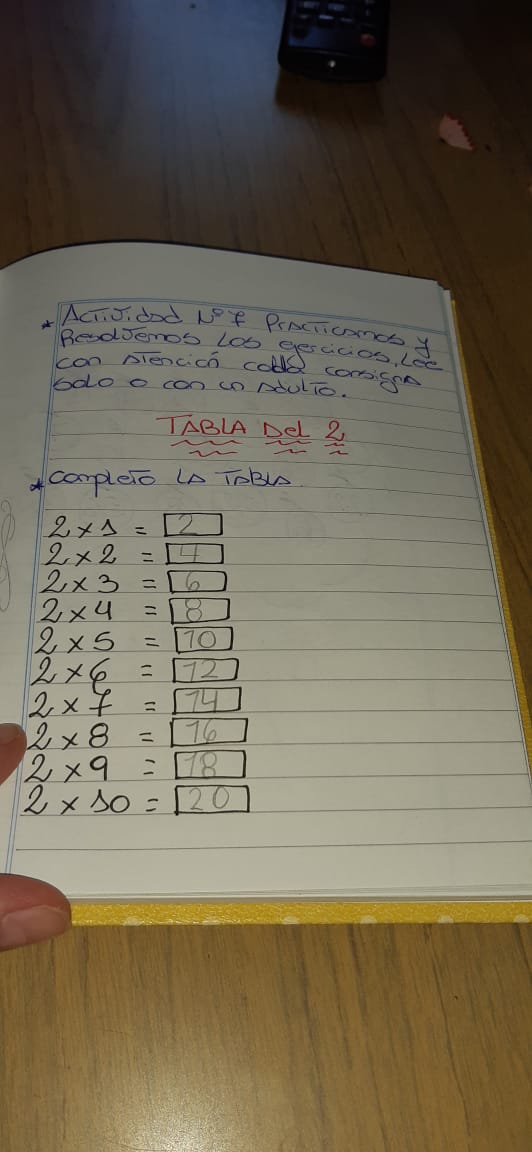 * Actividad Nº 7 Practicamos y
Resolvemos Los ejercicios, Lee
con Atención cada consigna
solo o con un Adulto.
TABLA Del 2
* completo LA TABLA.
2 x 1 = 2
2 x 2 = 4
2 x 3 = 6
2 x 4 = 8
2 x 5 = 10
2 x 6 = 12
2 x 7 = 14
2 x 8 = 16
2 x 9 = 18
2 x 10 = 20